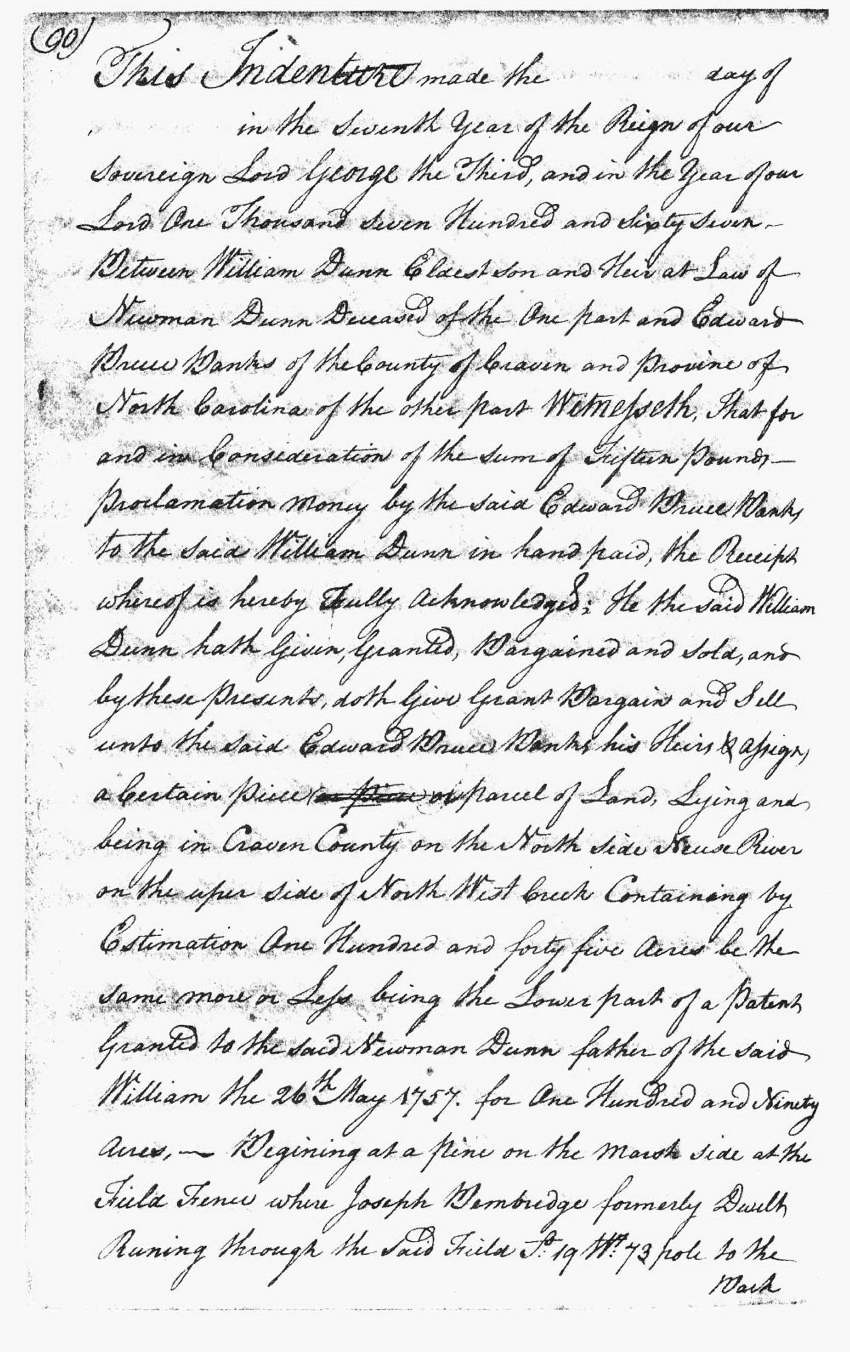 (90)
This Indenture made the day of
in the Seventh Year of the Reign of our
Sovereign Lord George the Third, and in the Year of our
Lord One Thousand Seven Hundred and Sixty Seven
Between William Dunn Eldest son and Heir at Law of
Newman Dunn Deceased of the One part and Edward
Bruce Banks of the County of Craven and Provine of
North Carolina of the other part Witnesseth, That for
and in Consideration of the sum of Fifteen pounds
Proclamation money by the said Edward Bruce Banks
to the said William Dunn in hand paid, the Receipt
whereof is hereby Fully Acknowledged; He the said William
Dunn hath Given, Granted, Bargained and Sold, and
by these Presents, doth Give Grant Bargain and Sell
unto the said Edward Bruce Banks his Heirs & Assigns
a Certain Piece or parcel of Land, Lying and
being in Craven County on the North side Neuse River
on the uper side of North West Creek Containing by
Estimation One Hundred and forty five Acres be the
same more or Less being the Lower part of a Patent
Granted to the said Newman Dunn father of the said
William the 26th May 1757. for One Hundred and Ninety
Acres, — Begining at a pine on the Marsh side at the
Field Fence where Joseph Bembridge formerly Dwelt
Runing through the said Field So. 19 Wt. 73 pole to the
Back